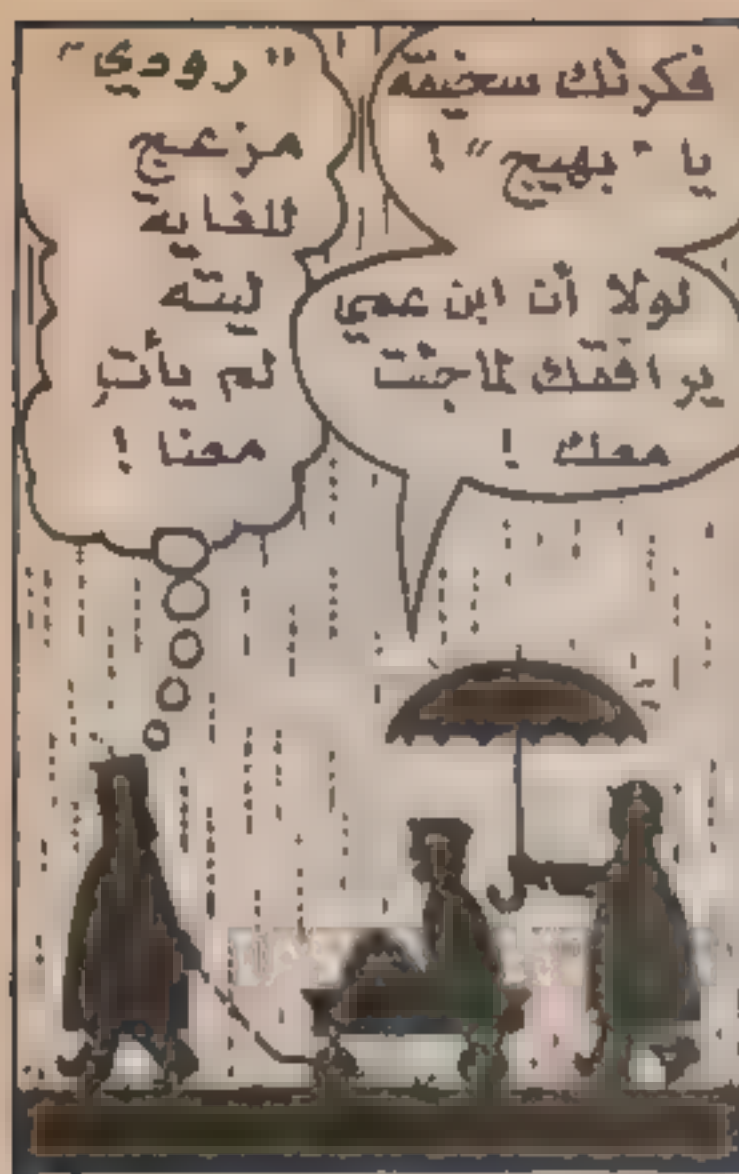 فكرتك سخيفة
يا "بهيج" !
لولا أن ابن عمي
يرافقك لما جئت
معك !
"رودي"
مزعج
للغاية
ليته
لم يأتِ
معنا !